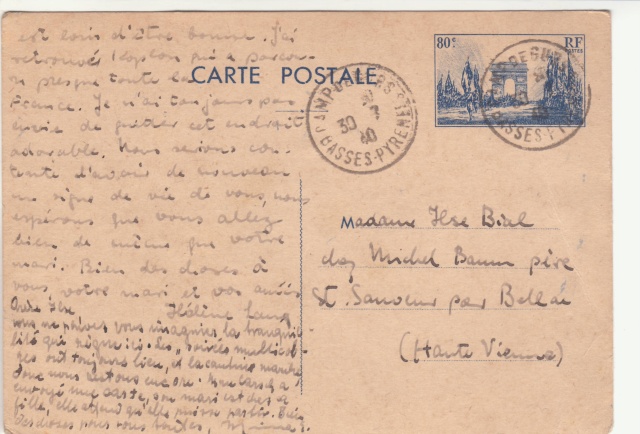 est loin d'être bonne. J'ai
retrouvé Kaplan qui a parcou-
ru presque toute la
France. Je n'ai toujours pas
envie de quitter cet endroit
adorable. Nous serions con-
tents d'avoir de nouveau
un signe de vie de vous, nous
espérons que vous allez
bien de même que votre
mari. Bien des choses à
vous votre mari et vos amis
Hélène Lang
CARTE POSTALE
80c
RF
POSTES
30
40
BASSES-PYRÉNÉES
BASSES-PY
Madame Ilse Biel
chez Michel Baum père
St. Sauveur par Bellac
(Haute Vienne)
Chère Ilse,
vous ne pouvez vous imaginer la tranquil-
lité qui règne ici. Les "soirées
ont toujours lieu, et la cantine marche
donc nous restons encore.
envoyé une carte, son mari est chez sa
fille, elle attend qu'elle puisse partir. Bien
des choses pour vous toutes,